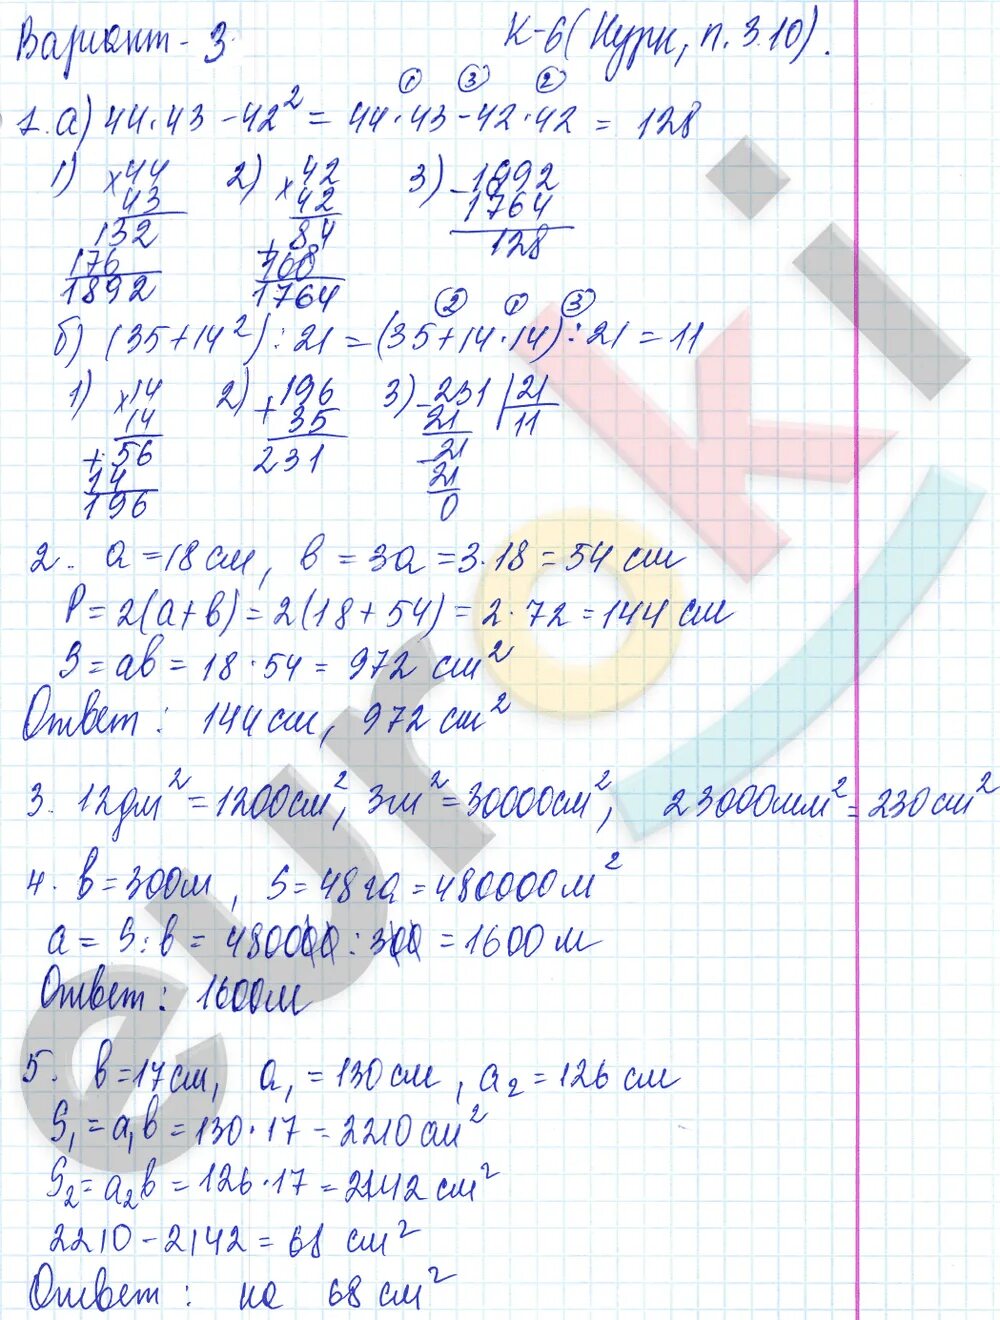 Вариант - 3
К-6 (Нурк, п. 3.10).
① ③ ②
1. а) 44·43 - 42² = 44·43 - 42·42 = 128
1) ×44 2) ×42 3) -1892
43 42 1764
132 + 84 128
176 168
1892 1764
② ① ③
б) (35+14²) : 21 = (35+14·14) : 21 = 11
1) ×14 2) +196 3) -231 | 21
14 35 21 11
+ 56 231 -21
14 21
196 0
2. a = 18 см, в = 3a = 3·18 = 54 см
P = 2(a+в) = 2(18+54) = 2·72 = 144 см
S = aв = 18·54 = 972 см²
Ответ: 144 см, 972 см²
3. 12 дм² = 1200 см², 3 м² = 30000 см², 23000 мм² = 230 см²
4. в = 300 м, S = 48 га = 480000 м²
a = S : в = 480000 : 300 = 1600 м
Ответ: 1600 м
5. в = 17 см, a₁ = 130 см, a₂ = 126 см
S₁ = a₁в = 130·17 = 2210 см²
S₂ = a₂в = 126·17 = 2142 см²
2210 - 2142 = 68 см²
Ответ: на 68 см²
euroki